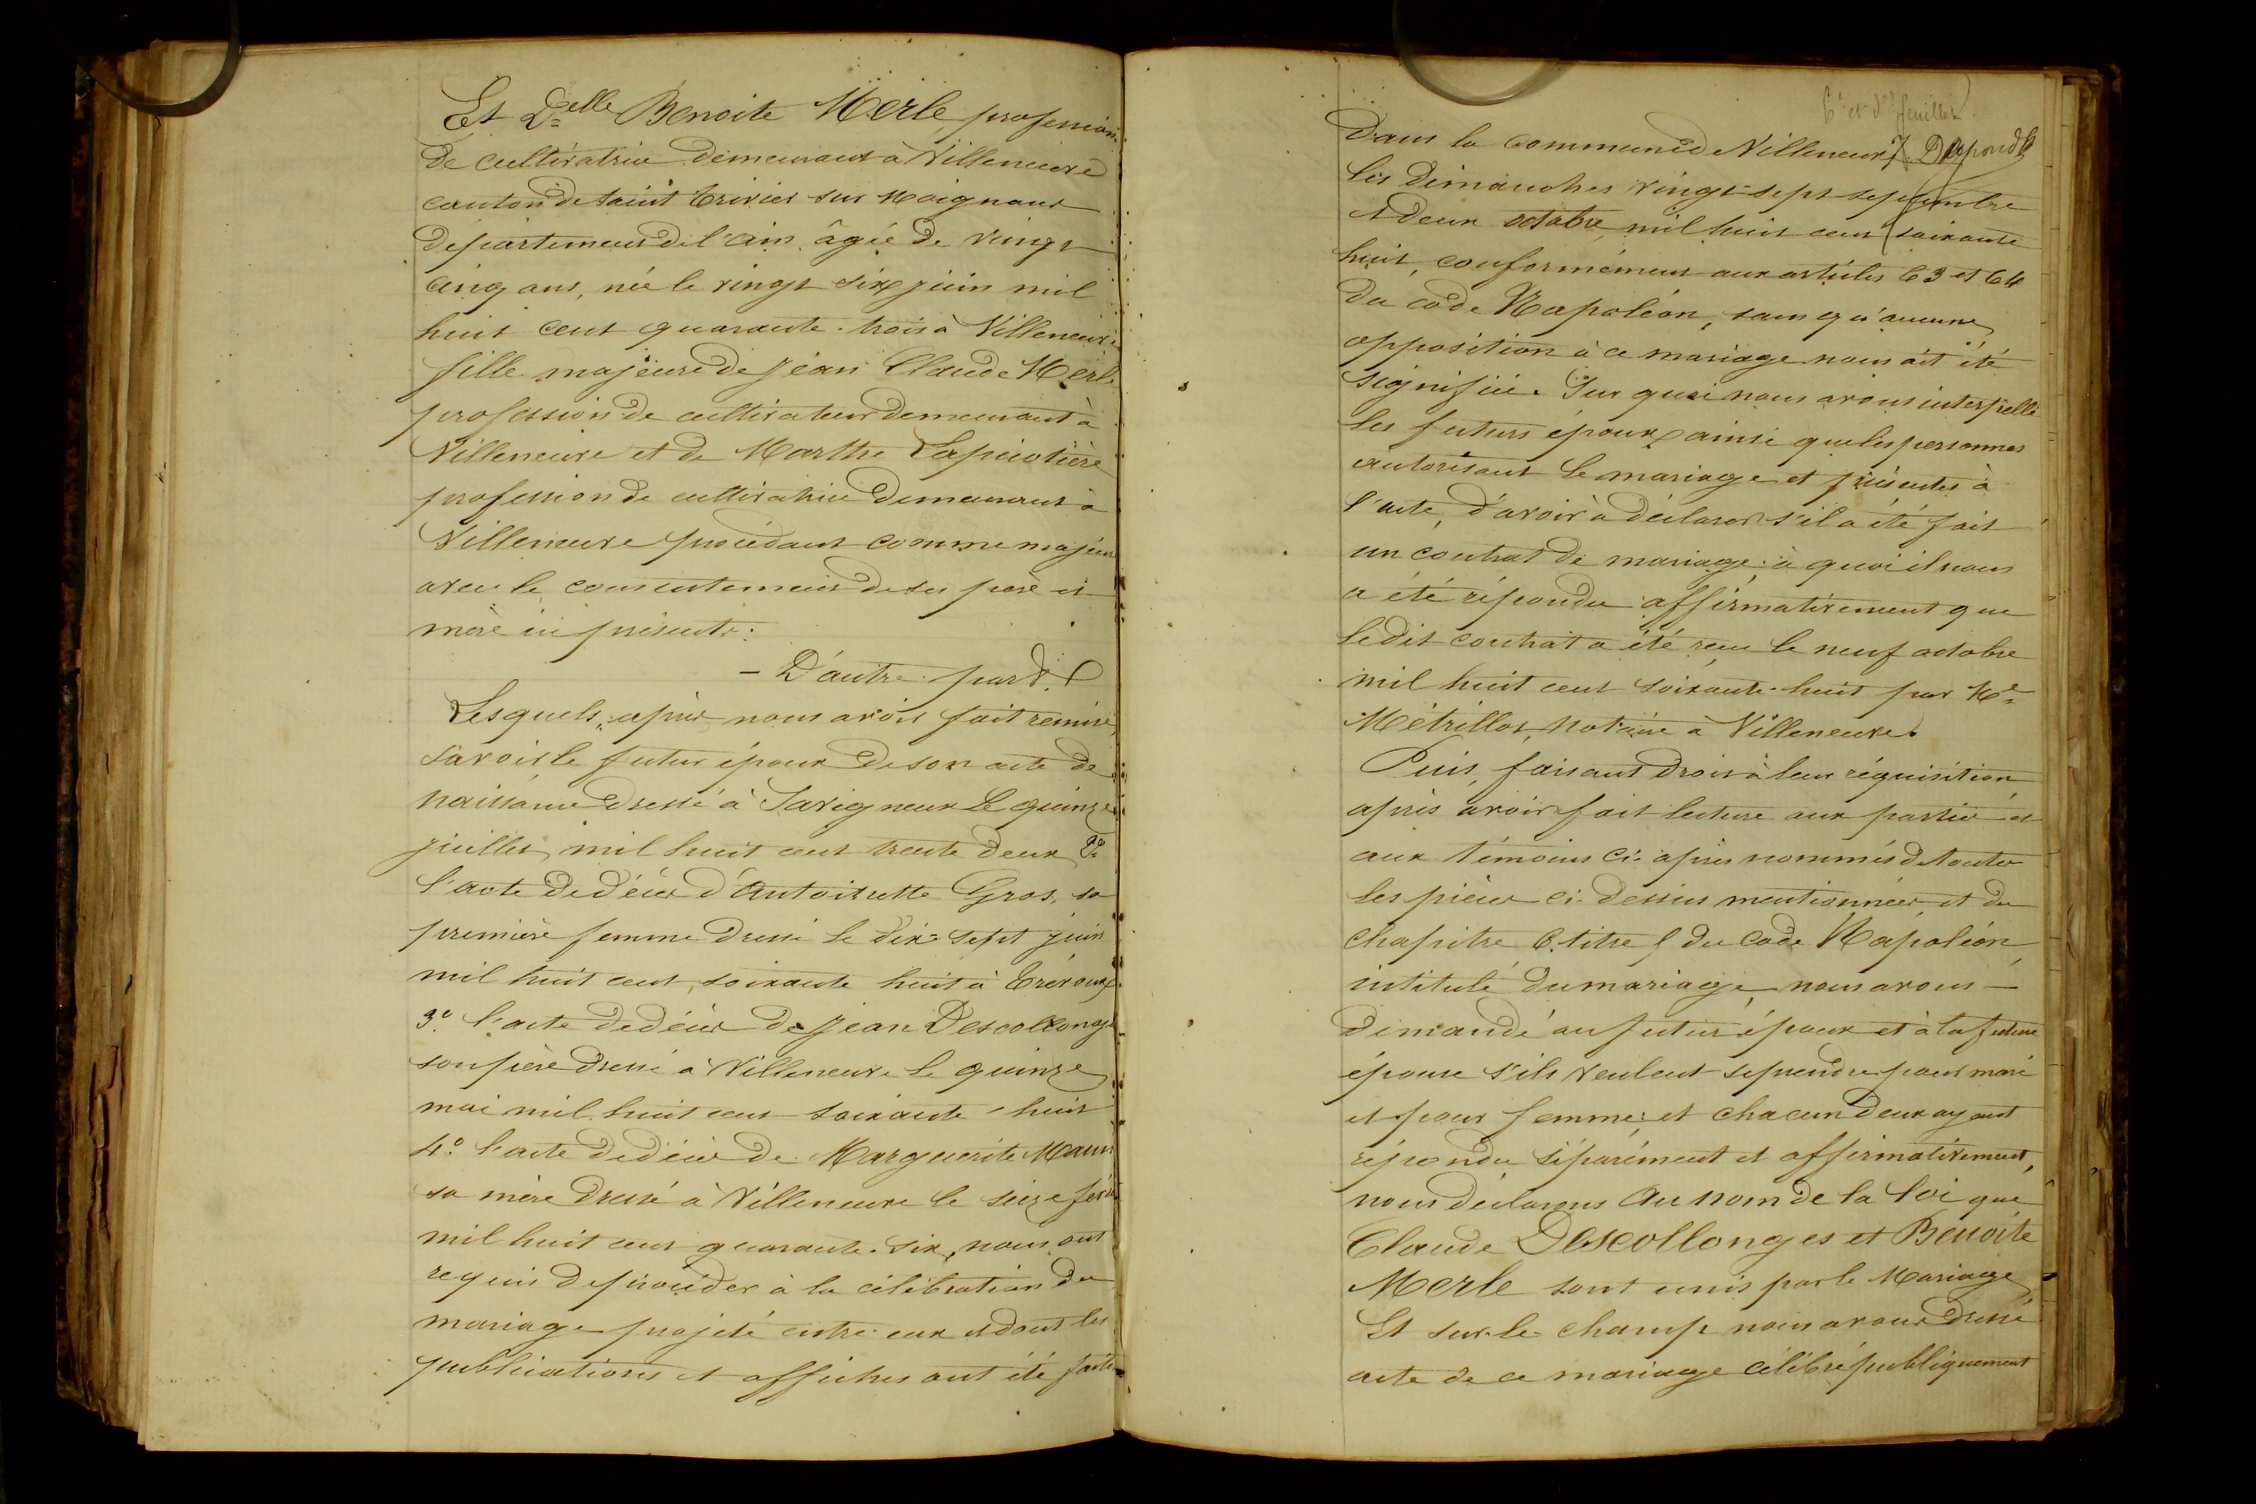 Et D.elle Benoite Merle, profession
de cultivatrice demeurant à Villeneuve
canton de Saint Trivier sur Moignans
département de l'ain, âgée de vingt
cinq ans, née le vingt six juin mil
huit cent quarante-trois à Villeneuve
fille majeure de Jean Claude Merle
profession de cultivateur demeurant à
Villeneuve et de Marthe
profession de cultivatrice demeurant à
Villeneuve procédant comme majeure
avec le consentement de ses père et
mère ici présents:
- D'autre part.
Lesquels, après nous avoir fait remise,
savoir le futur époux de son acte de
naissance dressé à Savigneux le quinze
juillet mil huit cent trente deux 2º
l'acte de décès d'Antoinette Gros, sa
première femme dressé le dix-sept juin
mil huit cent soixante huit à Trévoux
3º l'acte de décès de Jean Descollonges
son père dressé à Villeneuve le quinze
mai mil huit cent soixante-huit
4º l'acte de décès de Marguerite
sa mère dressé à Villeneuve le seize
mil huit cent quarante-six, nous ont
requis de procéder à la célébration du
mariage projeté entre eux et dont les
publications et affiches ont été faites
6e et feuillet.
Dans la commune de Villeneuve
les dimanches vingt-sept septembre
et deux octobre mil huit cent soixante
huit, conformément aux articles 63 et 64
du code Napoléon, sans qu'aucune
opposition à ce mariage nous ait été
signifiée. Sur quoi nous avons interpellé
les futurs époux, ainsi que les personnes
autorisant le mariage et présentes à
l'acte, d'avoir à déclarer s'il a été fait
un contrat de mariage; à quoi il nous
a été répondu affirmativement que
ledit contrat a été reçu le neuf octobre
mil huit cent soixante-huit par Me
Métrillot, Notaire à Villeneuve.
Puis, faisant droit à leur réquisition
après avoir fait lecture aux parties et
aux témoins ci-après nommés de toutes
les pièces ci-dessus mentionnées, et du
chapitre 6. titre 5 du code Napoléon,
intitulé du mariage, nous avons -
demandé au futur époux et à la future
épouse s'ils veulent se prendre pour mari
et pour femme: et chacun d'eux ayant
répondu séparément et affirmativement,
nous déclarons au nom de la loi que
Claude Descollonges et Benoite
Merle sont unis par le Mariage
Et sur-le-champ nous avons dressé
acte de ce mariage célébré publiquement